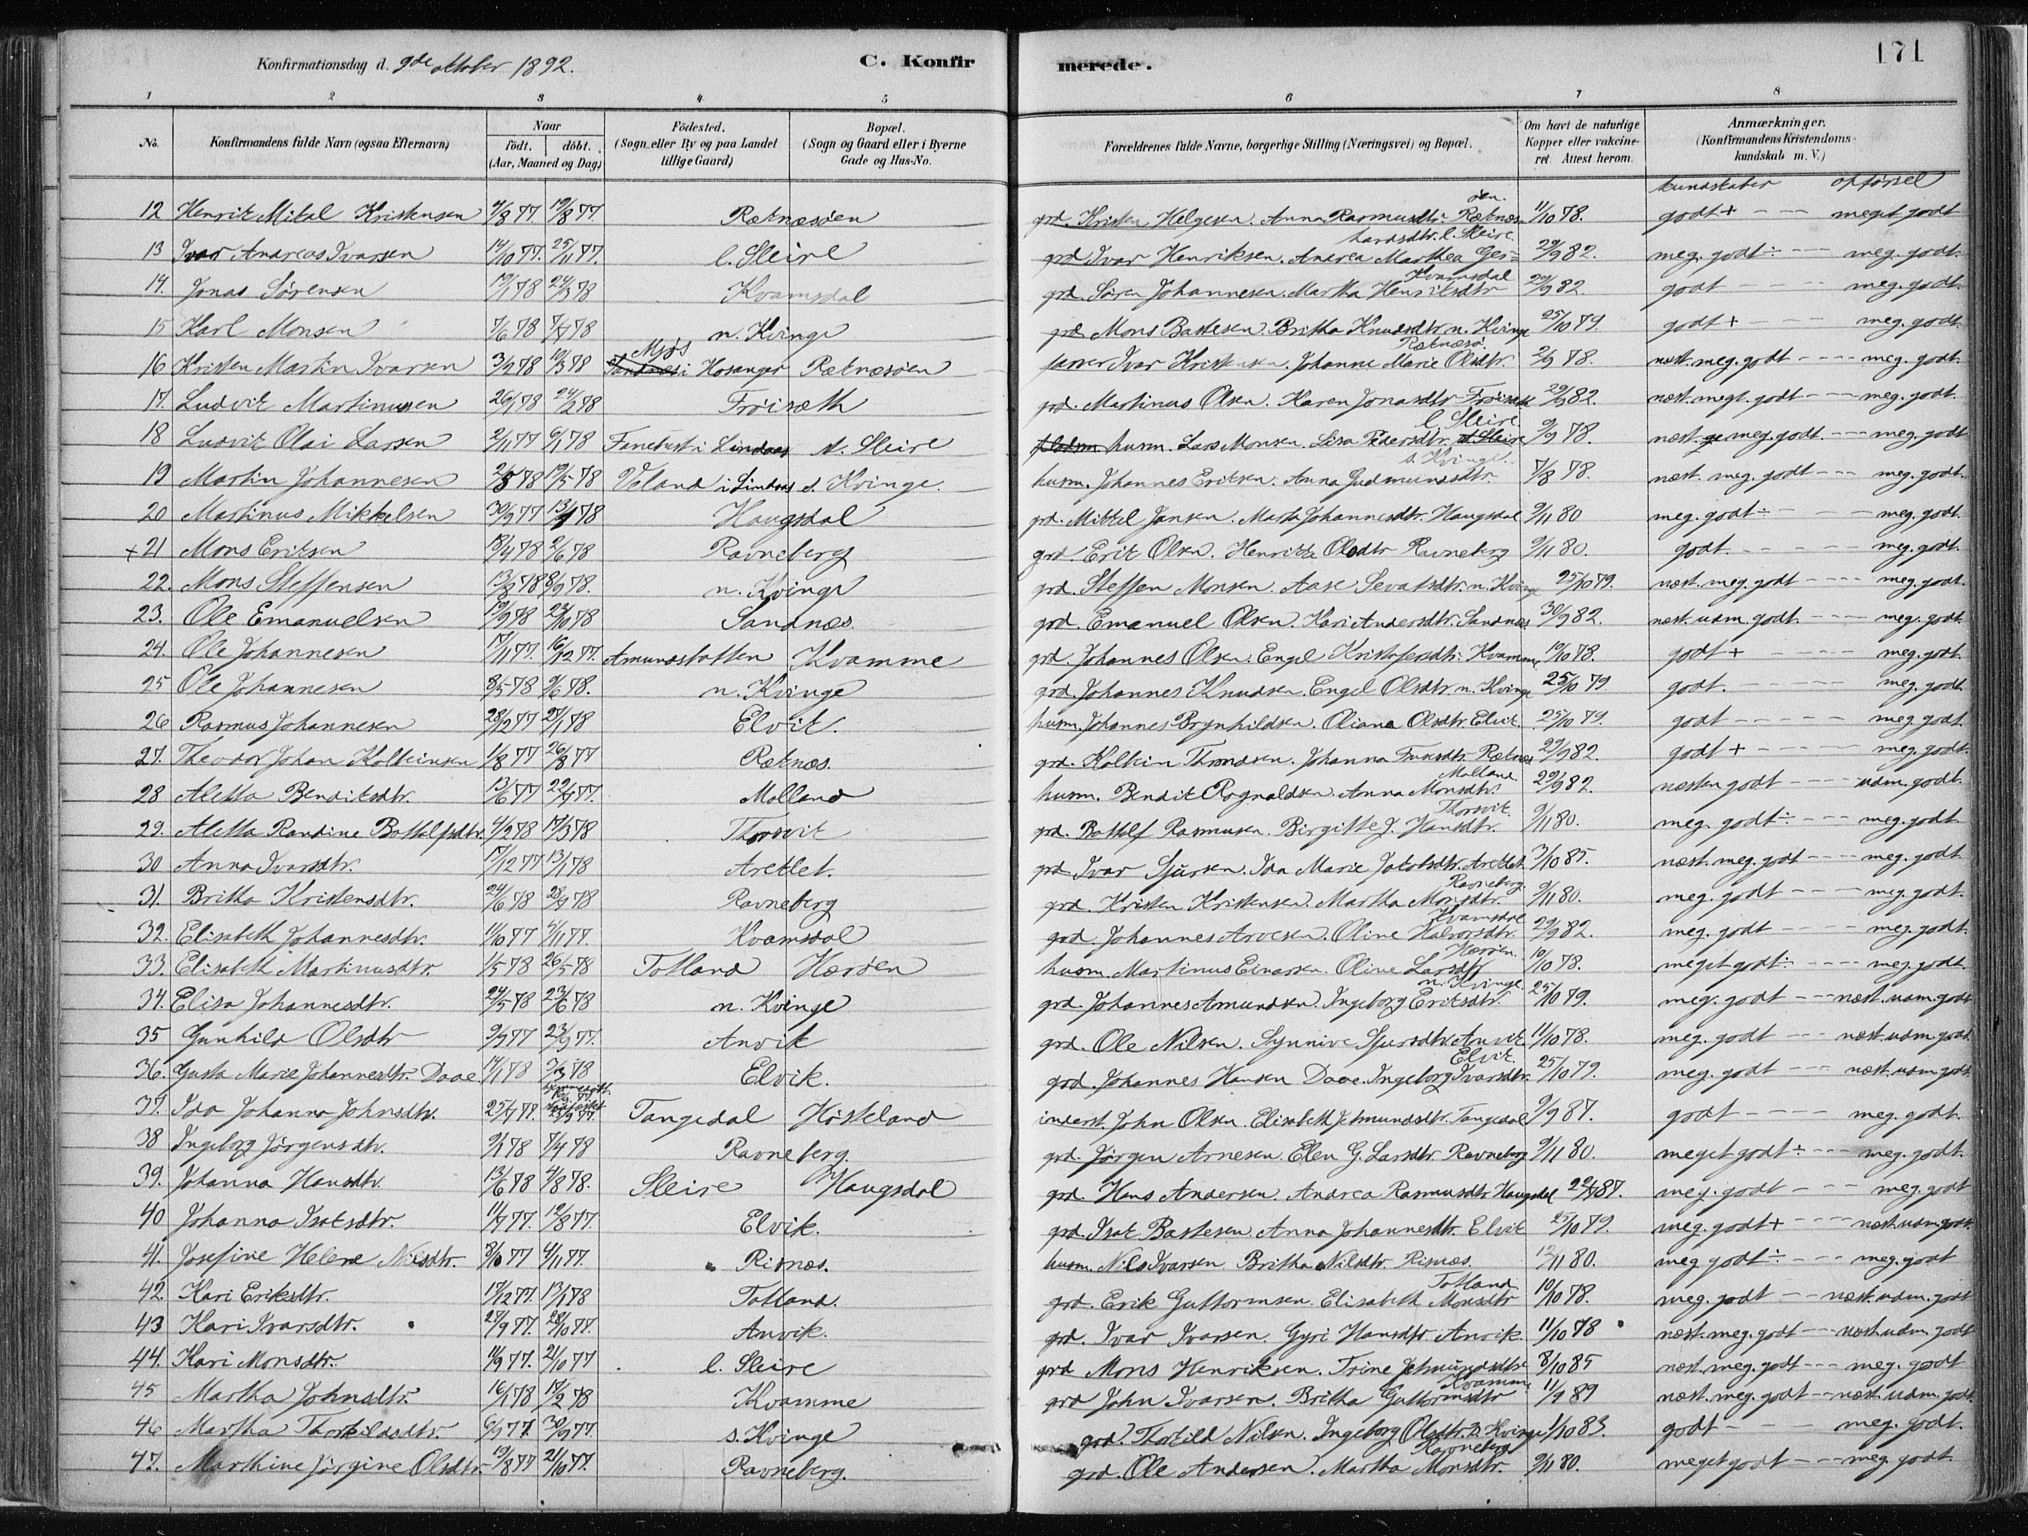 Konfirmationsdag d. 9de oktober 1892. C. Konfirmerede. 171
1 2 3 4 5 6 7 8
No. Konfirmandens fulde Navn (ogsaa Efternavn) Naar født. døbt. (Aar, Maaned og Dag) Fødested. (Sogn eller By og paa Landet tillige Gaard) Bopæl. (Sogn og Gaard eller i Byerne Gade og Hus-No. Forældrenes fulde Navne, borgerlige Stilling (Næringsvei) og Bopæl. Om havt de naturlige Kopper eller vakcineret. Attest herom. Anmærkninger. (Konfirmandens Kristendomskundskab m. V.)
kundskaber opførsel
12 Henrik Mikal Kristensen 19/8 77 Rætnæsöen grd. Kristen Helgesen. Anna Rasmusdtr. Rætnæsöen. 11/10 78. godt + - - meget godt
13 Ivar Andreas Ivarsen 14/10 77. 25/11 77. l. Sleire grd Ivar Henriksen. Andrea Marthea Gerhardsdtr. l. Sleire 29/9 82. meg. godt ÷ - - meg. godt.
14. Jonas Sørensen 19/1 78 24/3 78 Kvamsdal grd. Søren Johannesen. Martha Henriksdtr Kvamsdal 29/9 82. godt - - - meg. godt.
15 Karl Monsen 7/6 78 7/7 78 n. Kvinge grd Mons Bastesen. Britha Knudsdtr. n. Kvinge 25/10 79. godt + - - meg. godt
16 Kristen Martin Ivarsen 3/2 78 10/3 78 Mjøs i Hosanger Rætnæsöen Ivar Kristensen. Johanne Marie Olsdtr. Rætnæsö. 2/9 78. næst. meg. godt - - - meg. godt.
17. Ludvik Martinussen 26/1 78 24/2 78 Frøisæth grd. Martinus Olsen. Karen Jonasdtr Frøiseth 29/9 82. næst. megt. godt - - - meg. godt.
18 Ludvik Olai Larsen 2/11 77 6/1 78 Fanebust i Lindaas N. Sleire husm. Lars Monsen. Lisa Pedersdtr. l. Sleire 9/9 78. næst. meg. godt. - - - meg. godt
19 Martin Johannesen 2/5 78 19/5 78 Veland i Lindaas s. Kvinge. husm. Johannes Eriksen. Anna Gudmundsdtr. s. Kvinge. 7/8 78. næst. meg. godt - - - meg. godt.
20 Martinus Mikkelsen 30/9 77 13/1 78 Haugsdal grd. Mikkel Jansen. Marta Johannesdtr. Haugsdal 9/11 80 meg. godt ÷ - - meg. godt.
+ 21 Mons Eriksen 18/4 78 2/6 78 Ravneberg grd. Erik Olsen. Henrikke Olsdtr Ravneberg 9/11 80. godt. - - - - meg. godt.
22. Mons Steffensen 13/8 78 8/9 78. n. Kvinge grd. Steffen Monsen. Aase Sevatsdtr. n. Kvinge 25/10 79. næst. meg. godt - - - meg. godt.
23. Ole Emanuelsen 19/9 78 27/10 78 Sandnæs. grd. Emanuel Olsen. Kari Andersdtr. Sandnæs 30/9 82. næst. udm. godt. - - - meg. godt
24. Ole Johannesen 17/11 77. 16/12 77. Amundstotten Kvamme grd. Johannes Olsen. Engel Kristofersdtr. Kvamme 10/10 78. godt + - - - meg. godt.
25 Ole Johannesen 8/5 78 9/6 78. n. Kvinge grd. Johannes Knudsen. Engel Olsdtr. n. Kvinge 25/10 79. godt. - - - meg. godt
26 Rasmus Johannesen 28/12 77 27/1 78 Elvik. husm. Johannes Brynhildsen. Oliana Olsdtr. Elvik. 25/10 79. godt - - - - meg godt
27. Theodor Johan Kolbeinsen 1/8 77 26/8 77 Rætnæs. grd. Kolbein Throndsen. Johanna Rætnæs 29/9 82. godt + - - - meg. godt.
28 Aletta Benditsdtr. 13/6 77 22/7 77. Molland husm. Bendit Rognaldsen. Anna Monsdtr. Molland 29/9 82. næsten godt - - - udm. godt.
29. Aletta Randine Bottolfsdtr. 4/2 78 17/3 78 Thorsvik grd. Bottolf Rasmusen. Birgitte J. Hansdtr. Thorsvik 9/11 80. meg. godt ÷ - - - meg. godt.
30 Anna Ivarsdtr. 17/12 77 13/1 78 Areklet. grd. Ivar Sjursen. Ida Marie Jakobsdtr. Areklet 3/10 85. næst. meg. godt - - - meg. godt.
31. Britha Kristensdtr. 24/6 78 28/7 78 Ravneberg grd. Kristen Kristensen. Martha Monsdtr. Ravneberg 9/11 80. meg. godt - - - meg. godt.
32. Elisabeth Johannesdtr. 1/10 77 4/11 77. Kvamsdal grd. Johannes Arvesen. Oline Halvorsdtr. Kvamsdal 29/9 82. meg. godt - - - meg. godt
33. Elisabeth Martinusdtr. 1/5 78 26/5 78 Totland Hærøen husm. Martinus Einarsen. Oline Larsdtr Hærøen. 10/10 78. meget godt ÷ - - - meg. godt.
34. Elisa Johannesdtr. 24/5 78 23/6 78 n. Kvinge grd. Johannes Amundsen. Ingeborg Eriksdtr. n. Kvinge. 25/10 79. meg. godt - - - næst. udm. godt
35 Gunhild Olsdtr 9/9 77 23/9 77. Anvik grd. Ole Nilsen. Synnive Sjursdtr. Anvik 11/10 78. meg. godt - - - næst. udm. godt.
36. Gusta Marie Johannesdtr. Daae 17/1 78 3/3 78 Elvik. grd. Johannes Hansen Daae. Ingeborg Ivarsdtr. Elvik. 25/10 79. meg. godt - - - næst. udm. godt
37. Ida Johanna Johnsdtr. 25/7 77. 23/9 77. Tangedal Høsteland inderst. John Olsen. Elisabeth Jetmundsdtr. Tangedal 9/9 87. godt - - - - meg. godt.
38 Ingeborg Jørgensdtr. 9/1 78 7/4 78 Ravneberg. grd. Jørgen Arnesen. Elen G. Larsdtr. Ravneberg 9/11 80. meget godt ÷ - - meg. godt.
39. Johanna Hansdtr. 13/6 78 4/8 78. Sleire Haugsdal grd. Hans Andersen. Andrea Rasmusdtr. Haugsdal 22/9 87. meg. godt - - - meg. godt
40 Johanna Isaksdtr. 11/7 77. 19/8 77. Elvik. grd. Isak Bastesen. Anna Johannesdtr. Elvik 25/10 79. meg. godt + - - - næst. udm. godt.
41. Josefine Helene Nilsdtr. 3/10 77 4/11 77. Risnæs. husm. Nils Ivarsen Britha Nilsdtr. Risnæs. 12/11 80. meg godt ÷ - - - meg. godt
42. Kari Eriksdtr. 17/12 77. 13/1 78 Totland. grd. Erik Guttormsen. Elisabeth Monsdtr Totland 10/10 78. meg. godt - - næst. udm. godt
43 Kari Ivarsdtr. 27/9 77. 28/10 77. Anvik. grd. Ivar Ivarsen. Gyri Hansdtr Anvik. 11/10 78 næst. meg. godt - - næst. udm. godt
44. Kari Monsdtr. 11/9 77. 21/10 77 l. Sleire grd Mons Henriksen. Trine Jetmundsdtr. 8/10 85 næst. meg. godt - - - meg. godt
45 Martha Johnsdtr. 16/1 78 17/2 78 Kvamme grd John Ivarsen. Britha Guttormsdtr Kvamme 11/9 89 næst. meg. godt - - næst. udm. godt.
46 Martha Thorkildsdtr. 6/9 77. 30/9 77. s. Kvinge grd. Thorkild Nilsen. Ingeborg Olsdtr. s. Kvinge 1/10 83. godt - - - meg. godt.
47. Marthine Jørgine Olsdtr. 19/8 77 21/10 77. Ravneberg. grd. Ole Andersen. Martha Monsdtr. Ravneberg 9/11 80. meget godt - - - meg. godt.